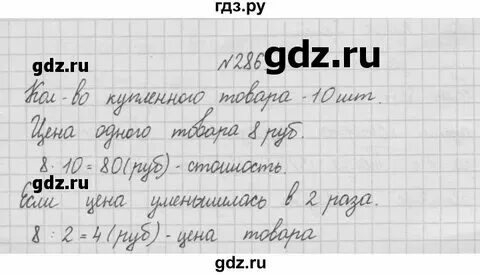 гдз.ру
gdz.ru
№286
gdz.ru
Кол-во купленного товара - 10 шт.
Цена одного товара 8 руб.
8 · 10 = 80 (руб) - стоимость.
gdz.ru
gdz.ru
Если цена уменьшилась в 2 раза.
8 : 2 = 4 (руб) - цена товара
gdz.ru